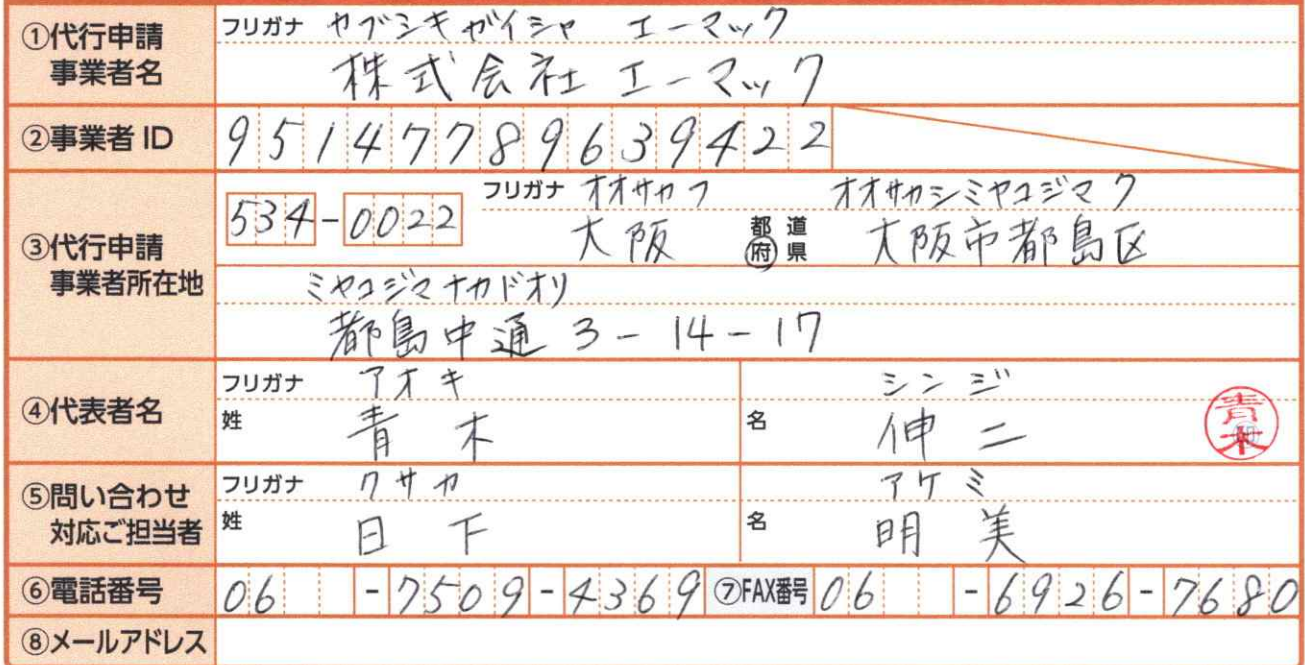 ①代行申請
事業者名
フリガナ カブシキガイシャ エーマック
株式会社 エーマック
②事業者 ID
95147789639422
③代行申請
事業者所在地
534-0022
フリガナ オオサカフ オオサカシミヤコジマク
大阪 都道府県 大阪市都島区
ミヤコジマナカドオリ
都島中通 3-14-17
④代表者名
フリガナ アオキ シンジ
姓 青木 名 伸二 青木
⑤問い合わせ
対応ご担当者
フリガナ クサカ アケミ
姓 日下 名 明美
⑥電話番号 06 -7509-4369 ⑦FAX番号 06 -6926-7680
⑧メールアドレス